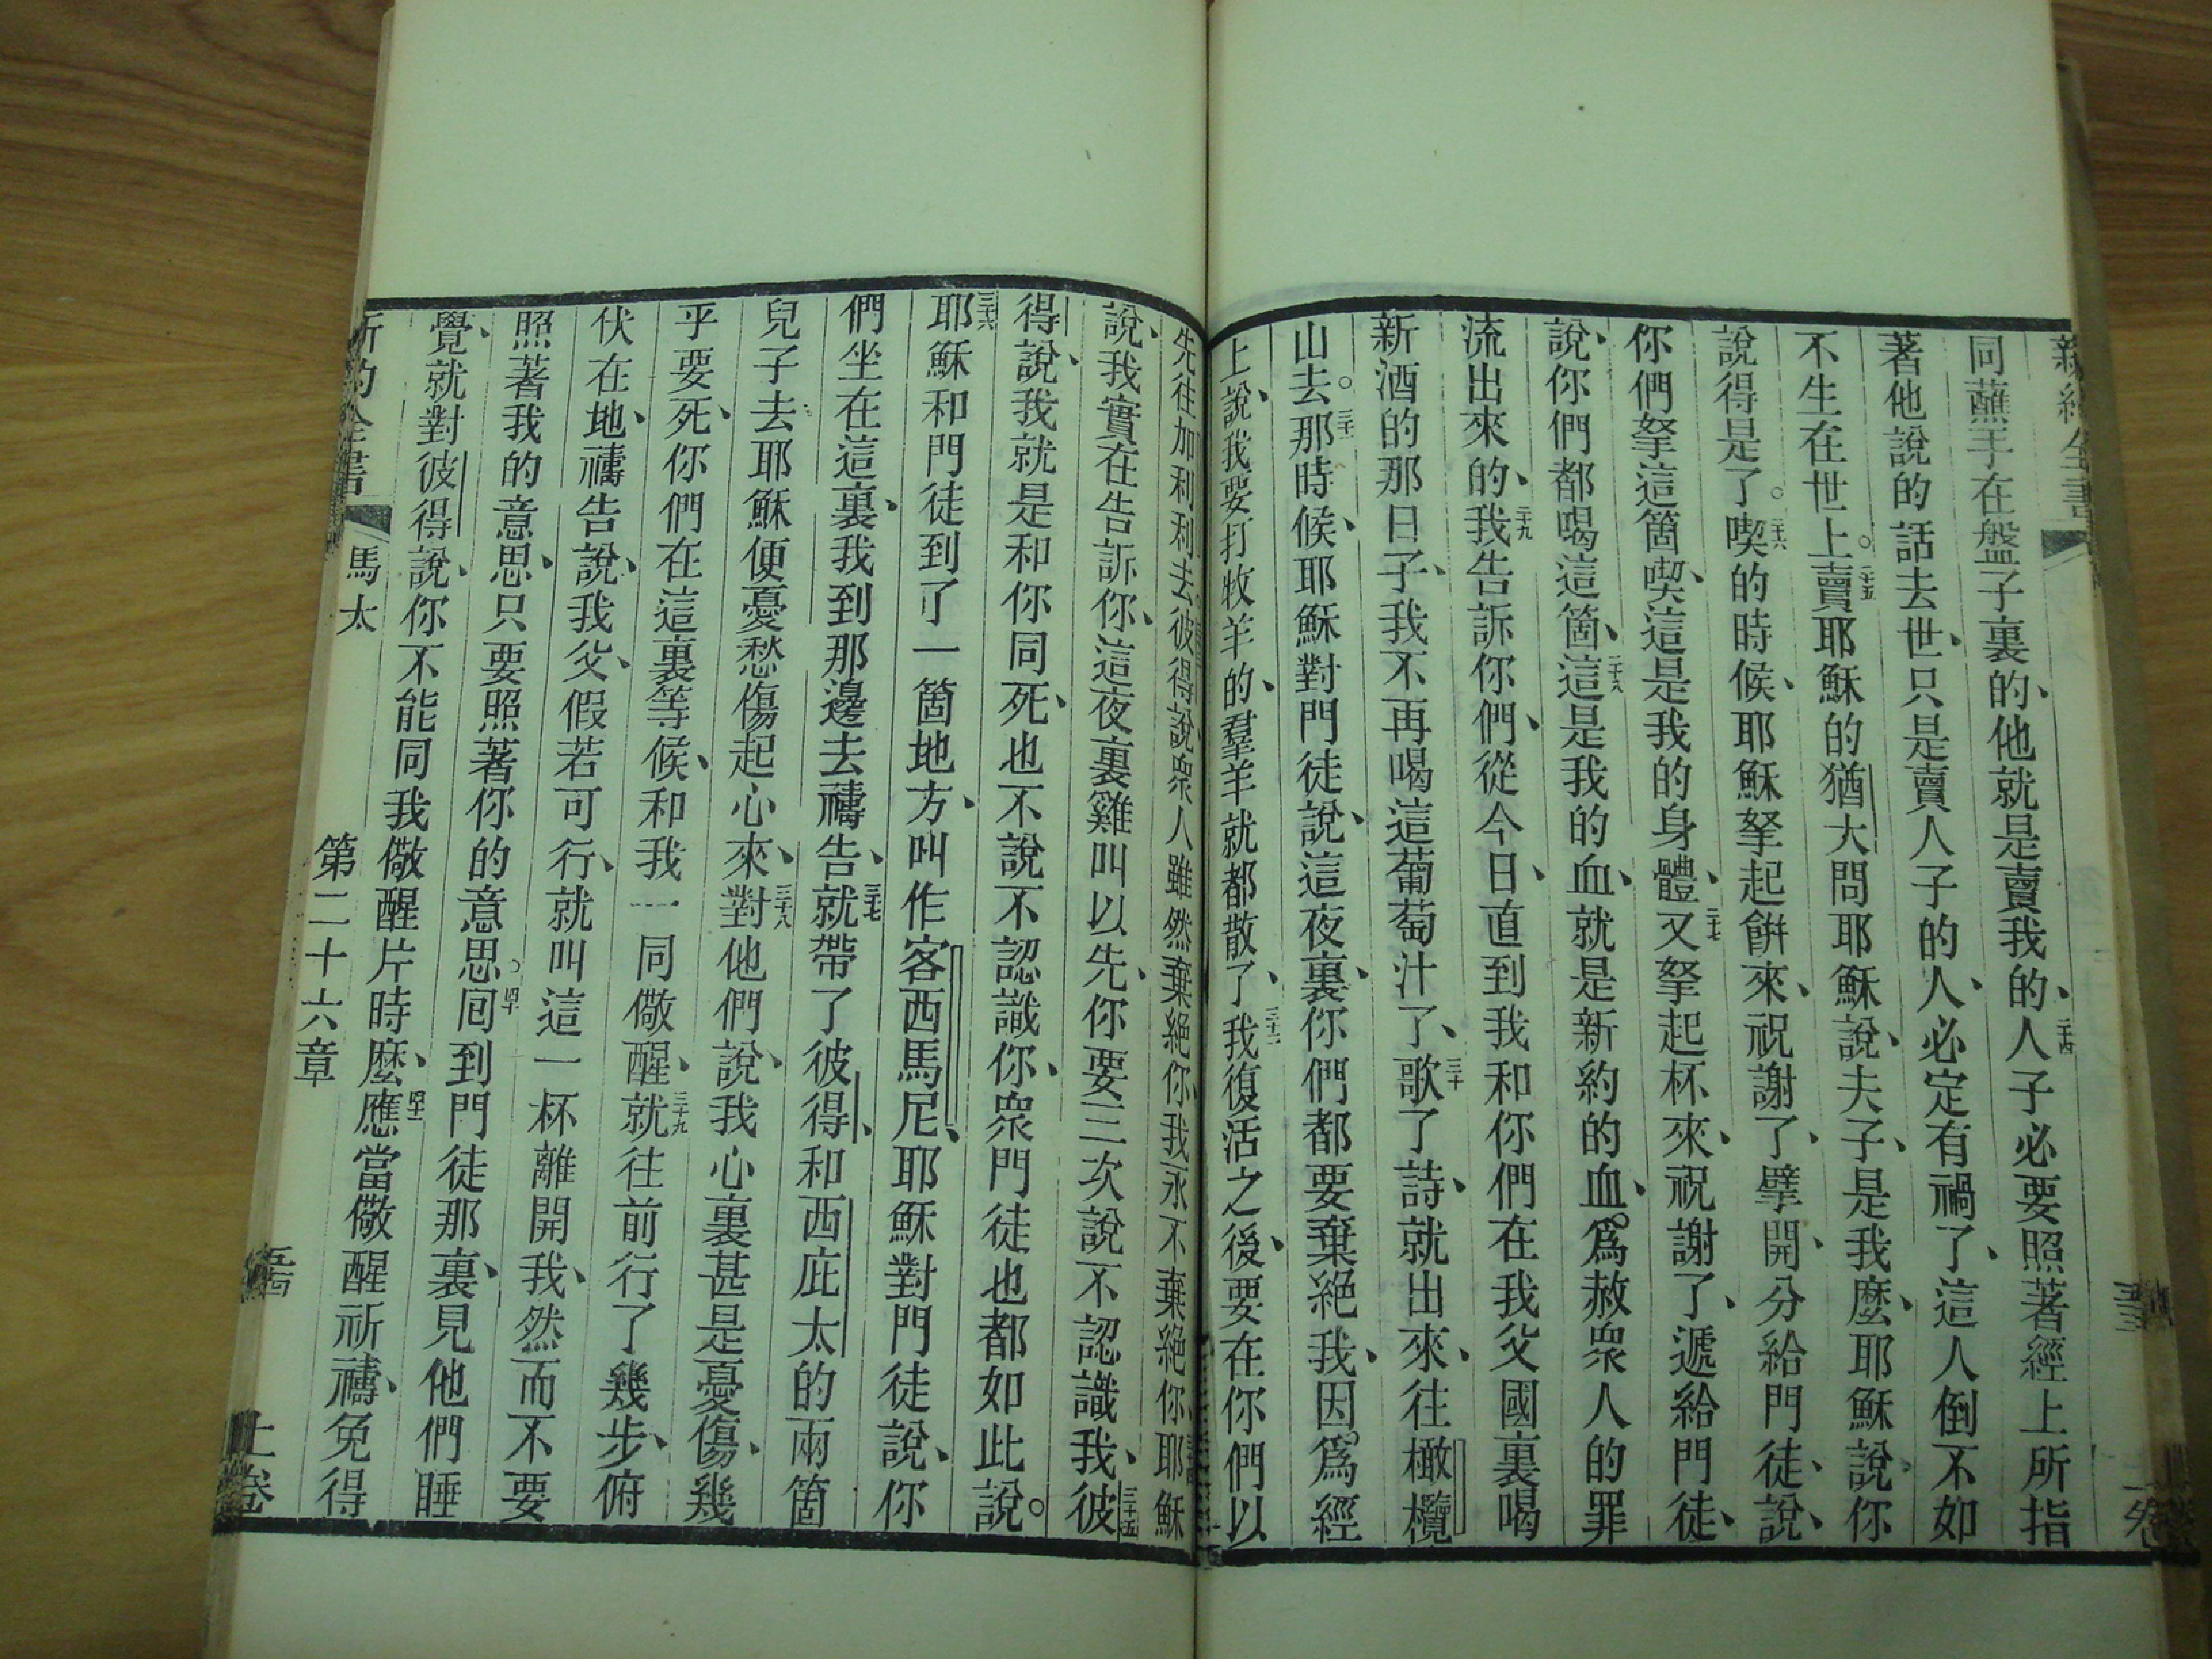 新約全書
同蘸手在盤子裏的、他就是賣我的、二十四人子必要照著經上所指
著他說的話去世、只是賣人子的人、必定有禍了、這人倒不如
不生在世上。二十五賣耶穌的猶大問耶穌說、夫子、是我麼、耶穌說、你
說得是了。二十六喫的時候、耶穌拏起餅來、祝謝了、擘開、分給門徒、說、
你們拏這箇喫、這是我的身體、二十七又拏起杯來、祝謝了、遞給門徒、
說、你們都喝這箇、二十八這是我的血、就是新約的血、爲赦衆人的罪
流出來的、二十九我告訴你們、從今日、直到我和你們在我父國裏喝
新酒的那日子、我不再喝這葡萄汁了、三十歌了詩、就出來、往橄欖
山去。三十一那時候、耶穌對門徒說、這夜裏、你們都要棄絕我、因爲經
上說、我要打牧羊的、羣羊就都散了、三十二我復活之後、要在你們以
先往加利利去彼得說衆人雖然棄絕你、我永不棄絕你、三十四耶穌
說、我實在告訴你、這夜裏雞叫以先、你要三次說不認識我、三十五彼
得說、我就是和你同死、也不說不認識你、衆門徒也都如此說。
三十六耶穌和門徒到了一箇地方、叫作客西馬尼、耶穌對門徒說、你
們坐在這裏、我到那邊去禱告、三十七就帶了彼得、和西庇太的兩箇
兒子去、耶穌便憂愁傷起心來、三十八對他們說、我心裏甚是憂傷、幾
乎要死、你們在這裏等候、和我一同儆醒、三十九就往前行了幾步、俯
伏在地、禱告說、我父、假若可行、就叫這一杯離開我、然而不要
照著我的意思、只要照著你的意思。四十回到門徒那裏、見他們睡
覺、就對彼得說、你不能同我儆醒片時麼、四十一應當儆醒祈禱、免得
新約全書 馬太 第二十六章 五十四 上卷